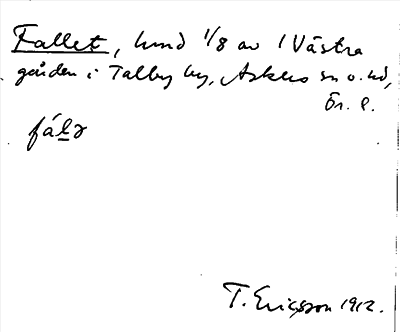 Fallet, hmd 1/8 av 1 Västra
gården i Talby by, Askers sn o. hd,
Ör. l.
fálə
T. Ericsson 1912.